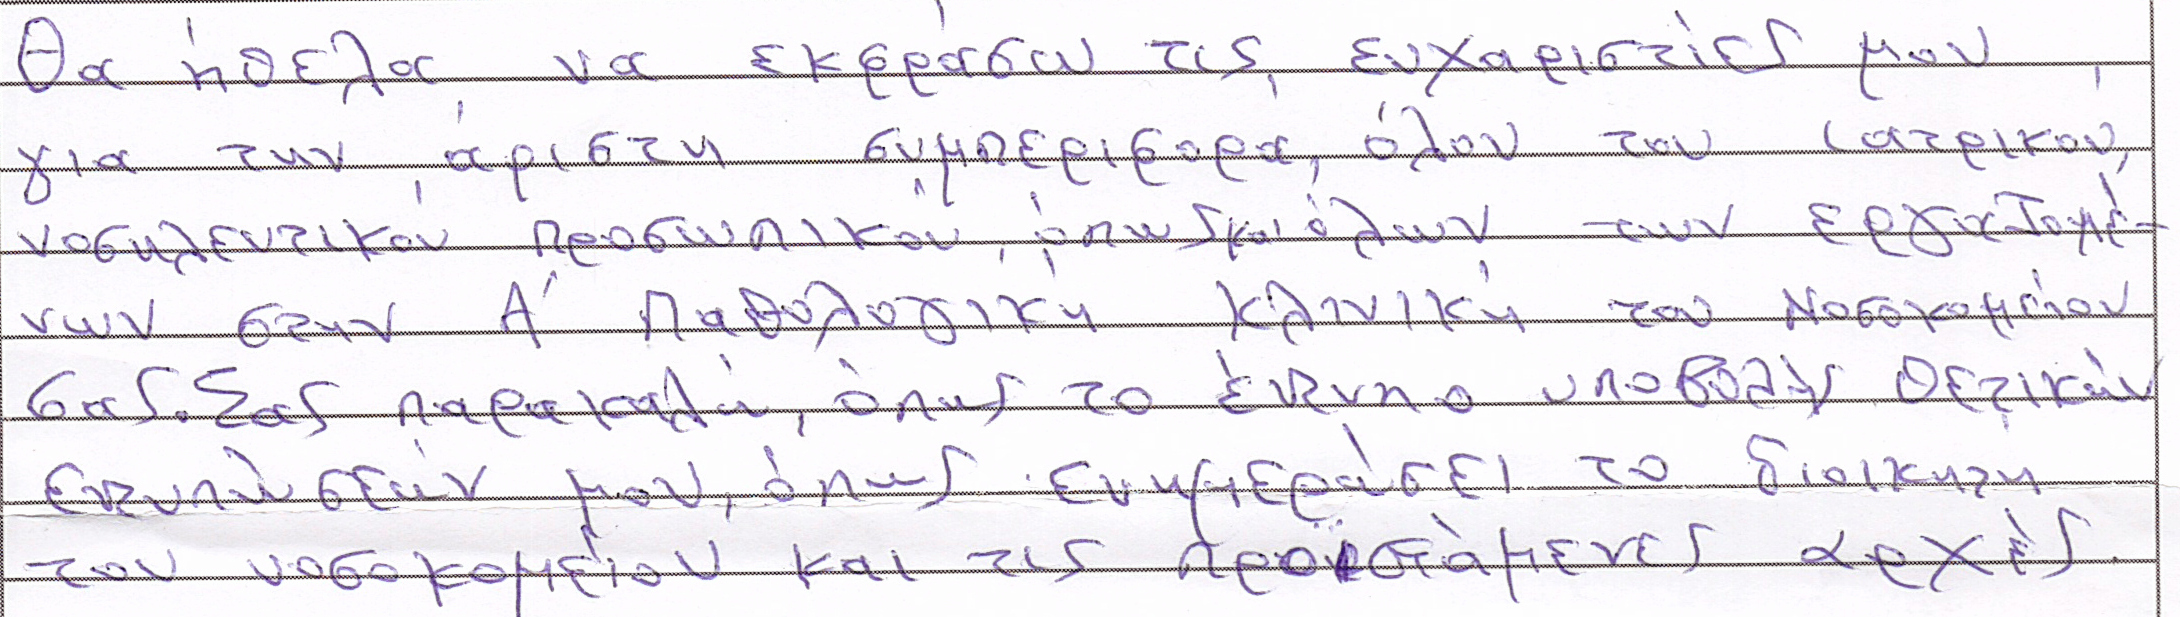 Θα ήθελα να εκφράσω τις ευχαριστίες μου,
για την άριστη συμπεριφορά, όλου του ιατρικού,
νοσηλευτικού προσωπικού, όπως και όλων των εργαζομέ-
νων στην Α' Παθολογική Κλινική του Νοσοκομείου
σας. Σας παρακαλώ, όπως το έντυπο υποβολής θετικών
εντυπώσεών μου, όπως ενημερώσει το διοικητή
του νοσοκομείου και τις προϊστάμενες αρχές.